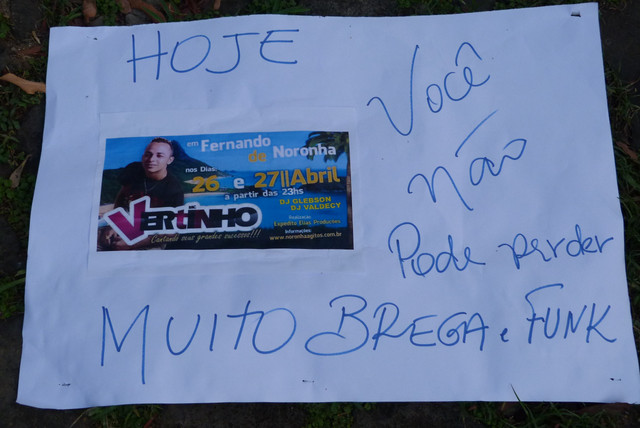 HOJE
Você
não
Pode perder
em Fernando
de Noronha
nos Dias:
26 e 27||Abril
a partir das 23hs
DJ GLEBSON
DJ VALDECY
VERtINHO
Cantando seus grandes sucessos!!!
Realização:
Informações:
www.noronhaagitos.com.br
MUITO BREGA e FUNK